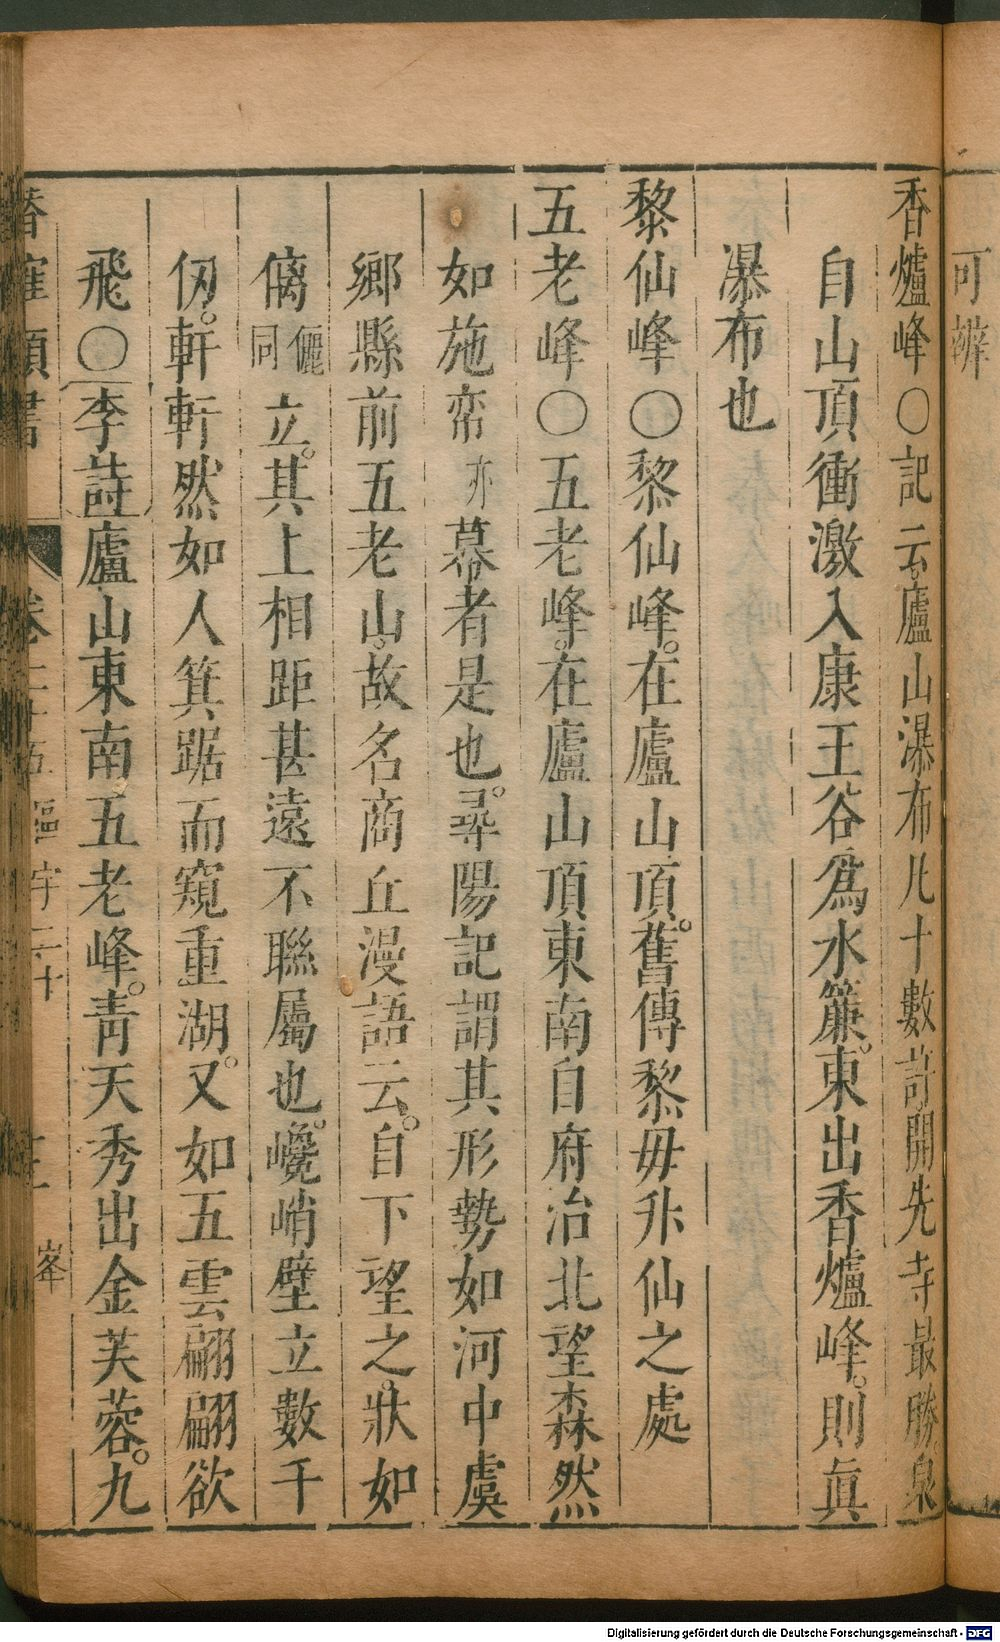 可辨
香爐峰〇記云廬山瀑布凡十數許開先寺最勝泉
自山頂衝激入康王谷爲水簾東出香爐峰則眞
瀑布也
黎仙峰〇黎仙峰在廬山頂舊傳黎毋升仙之處
五老峰〇五老峰在廬山頂東南自府治北望森然
如施帟亦幕者是也尋陽記謂其形勢如河中虞
鄉縣前五老山故名商丘漫語云自下望之狀如
㒧儷同立其上相距甚遠不聯屬也巉峭壁立數千
仞軒軒然如人箕踞而窺重湖又如五雲翩翩欲
飛〇李詩廬山東南五老峰靑天秀出金芙蓉九
卷二十五 區宇二十 峯
Digitalisierung gefördert durch die Deutsche Forschungsgemeinschaft - DFG